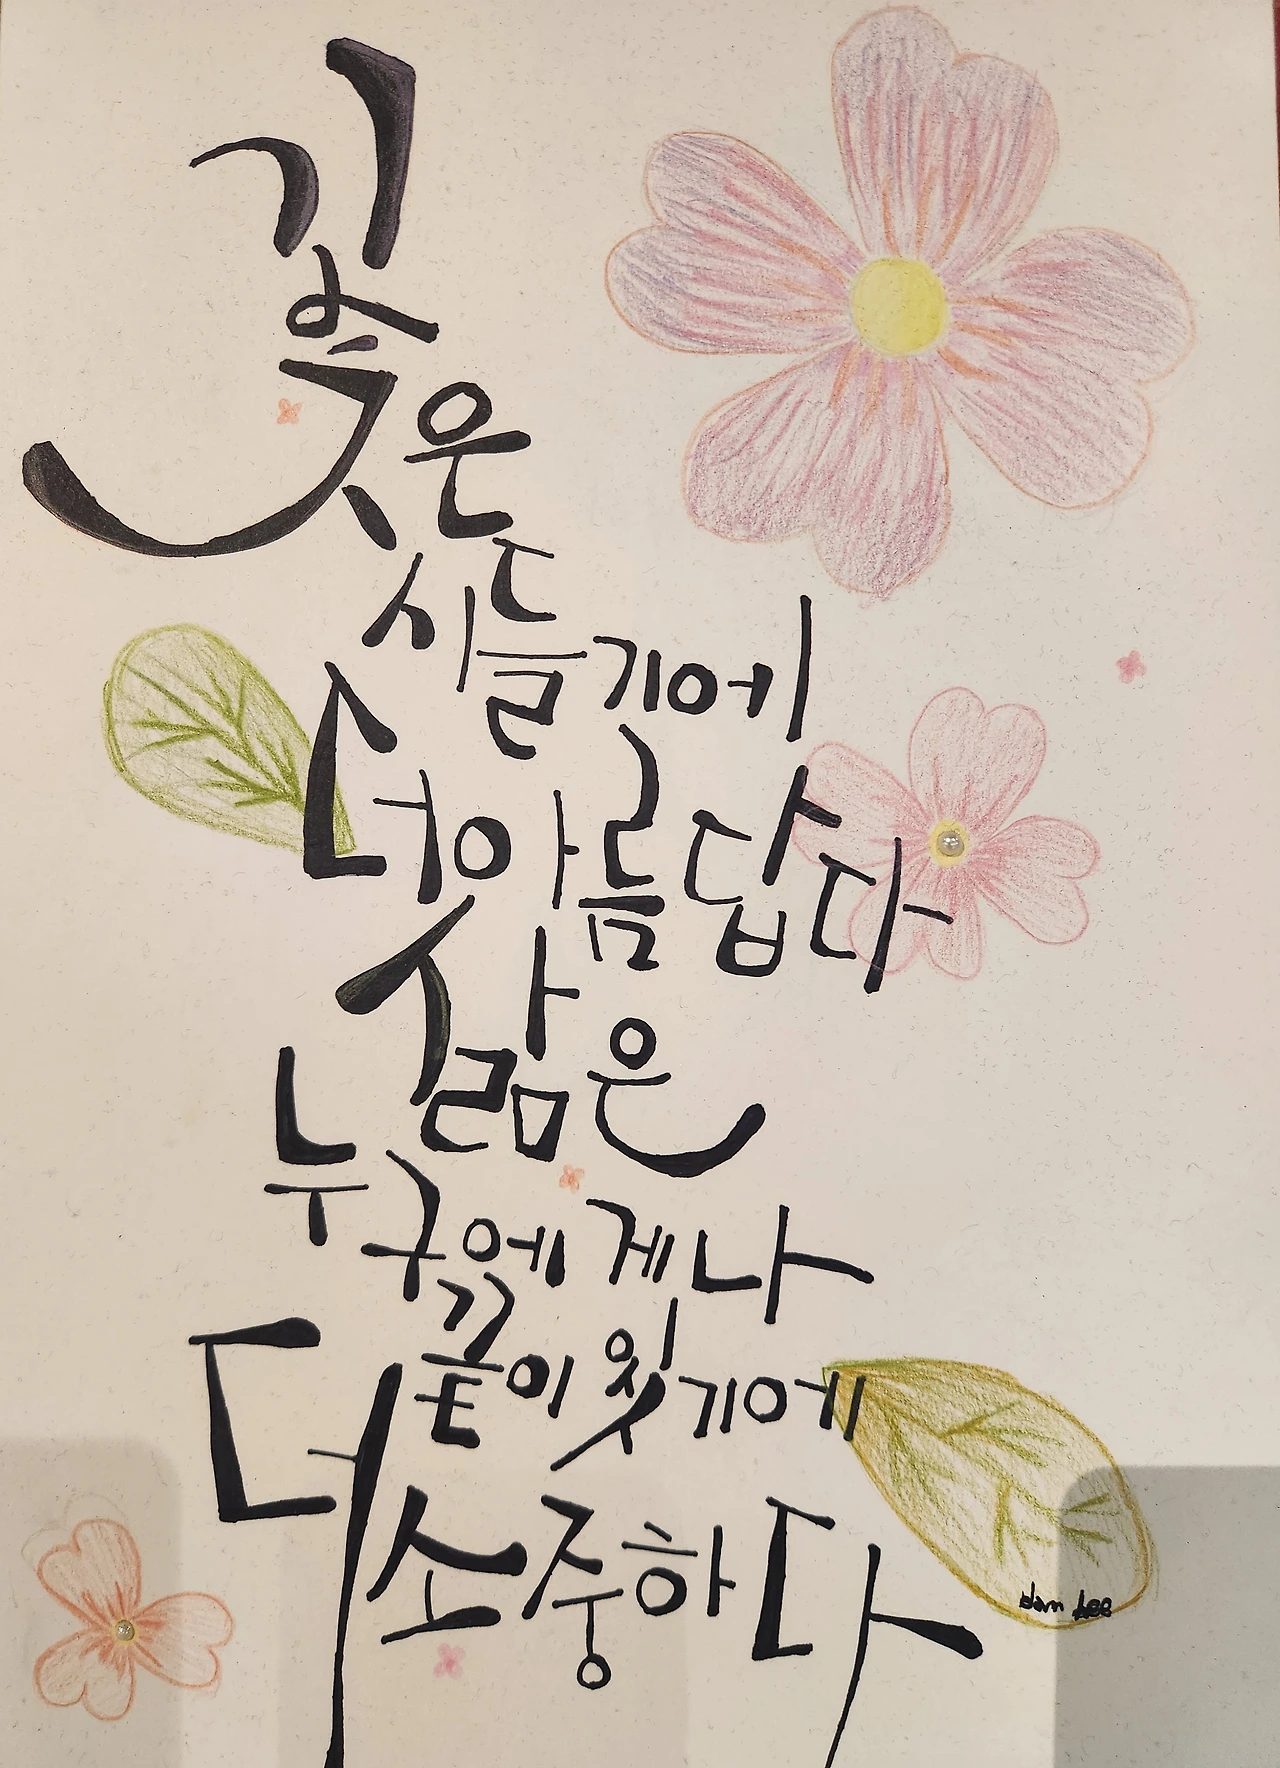 꽃은
시들기에
더 아름답다
삶은
누구에게나
끝이 있기에
더 소중하다
dan Lee